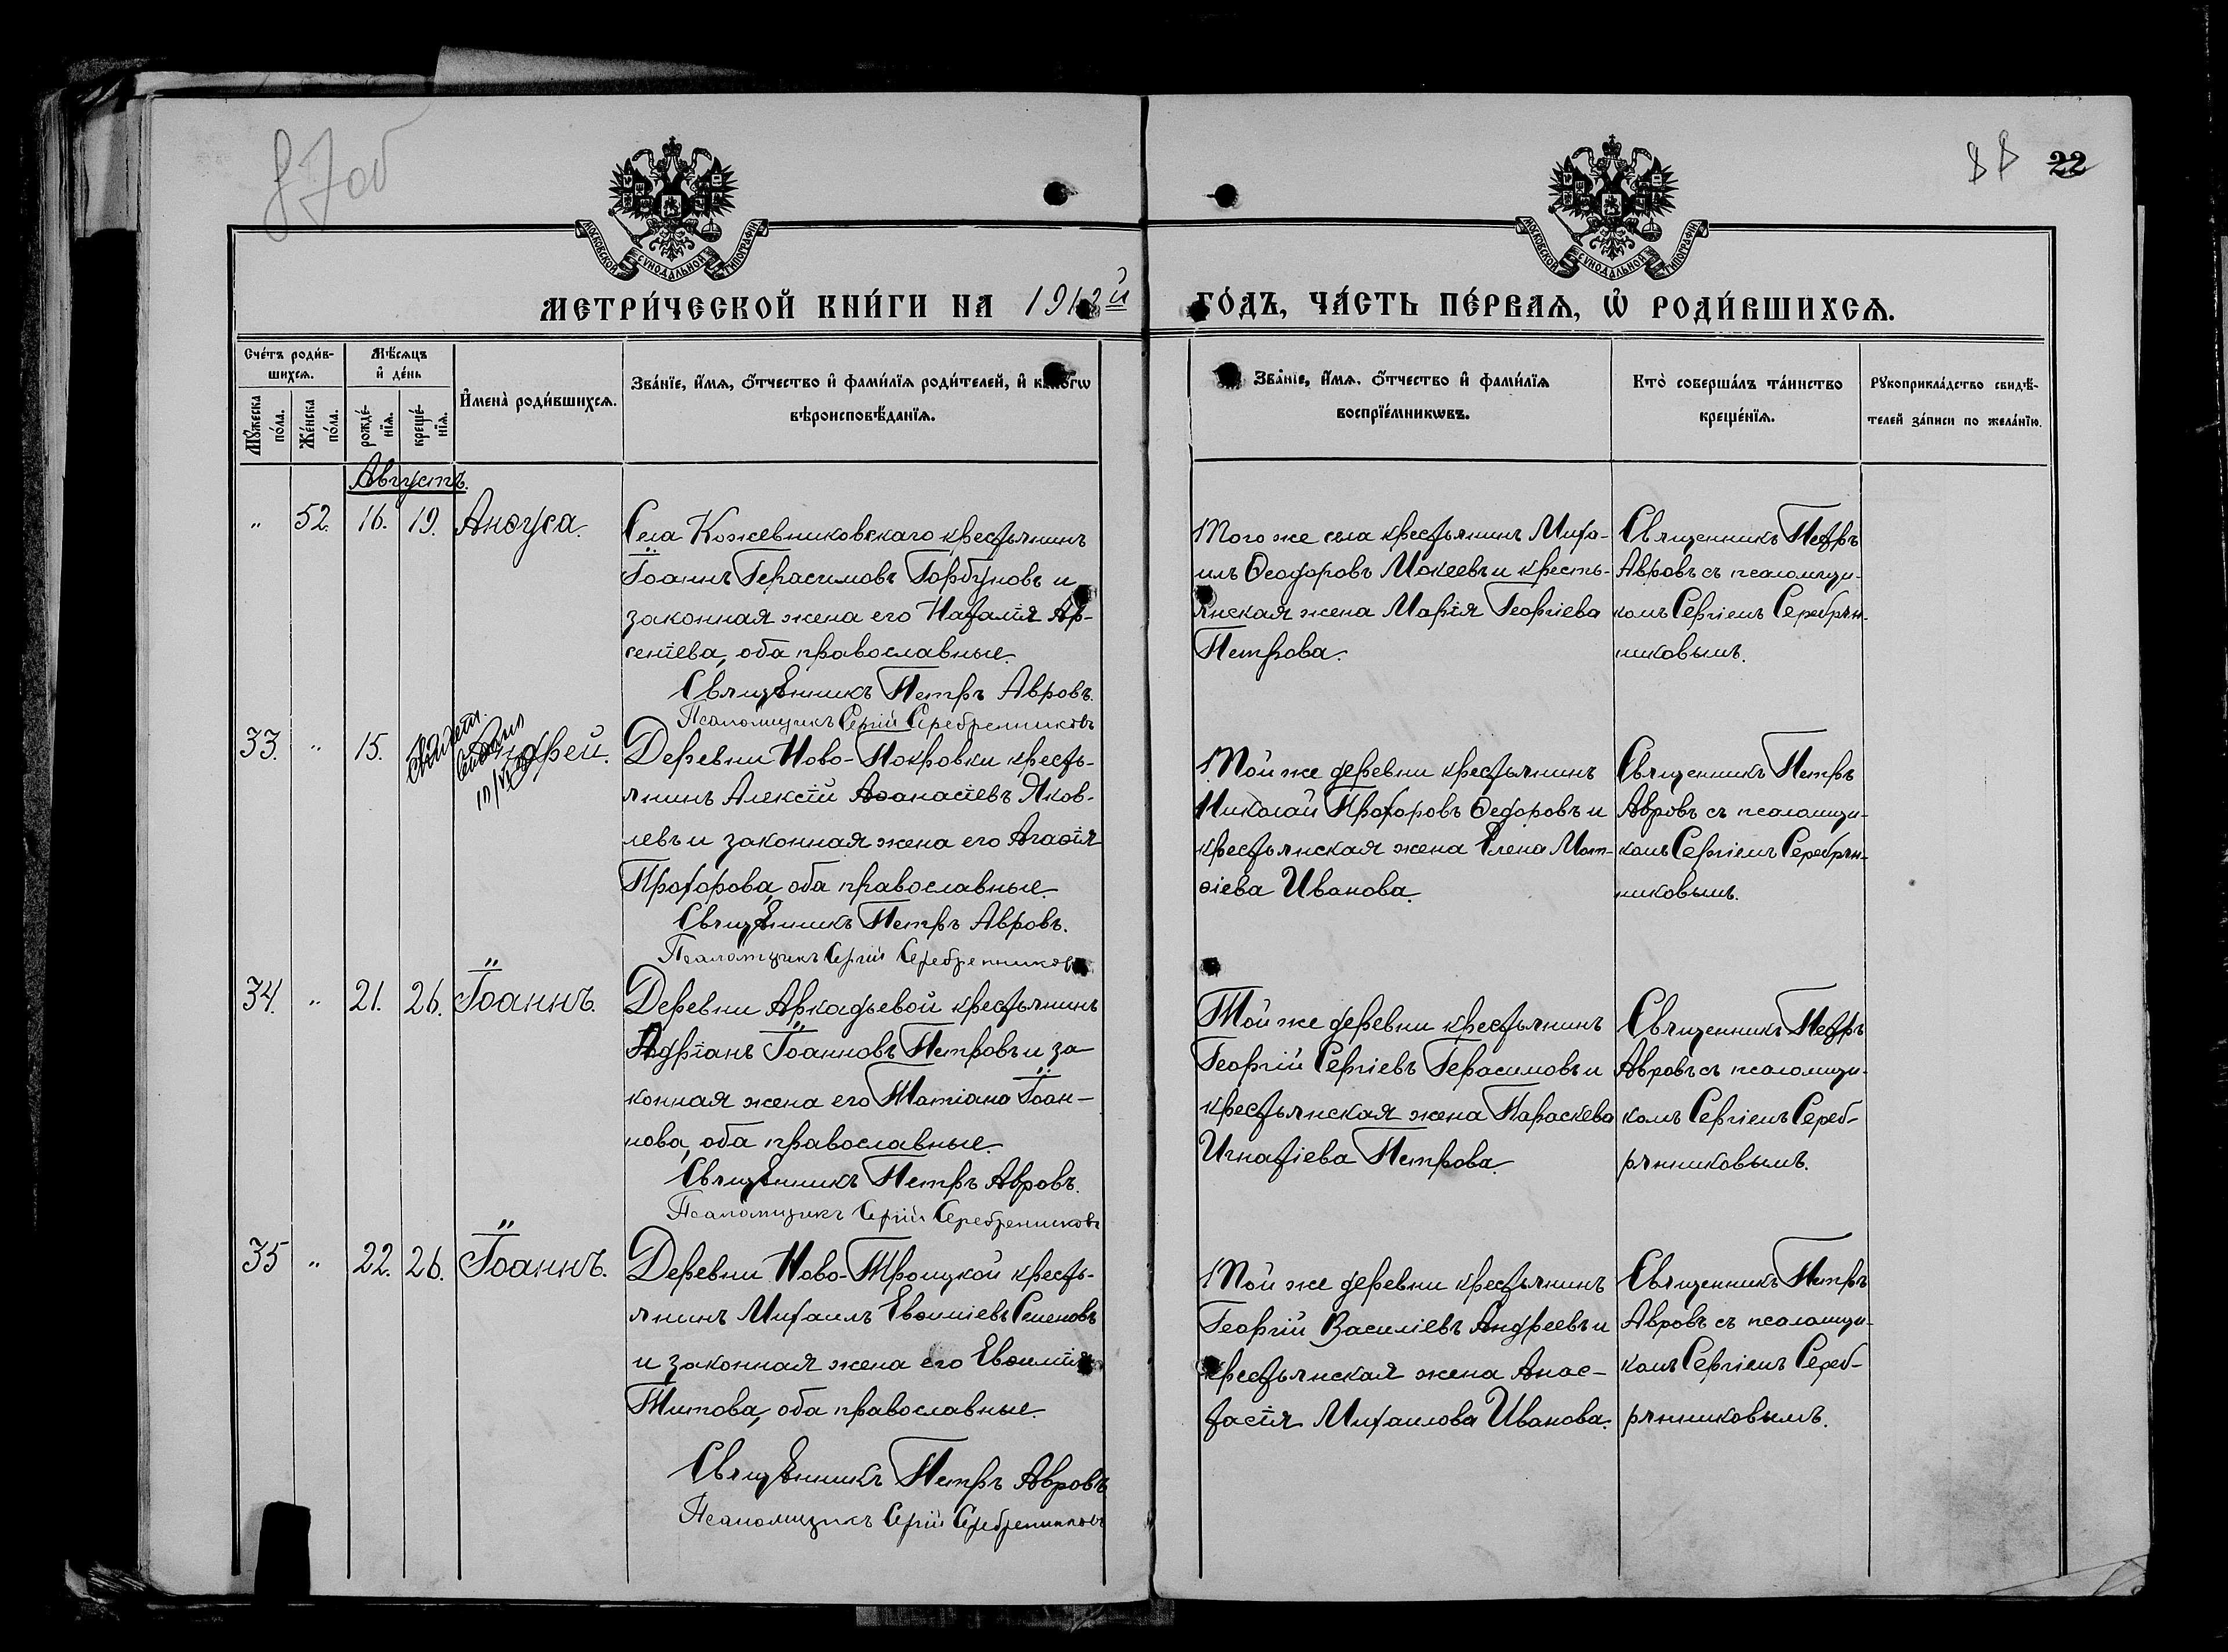 87об
22
МОСКОВСКОЙ СѴНОДАЛЬНОЙ ТИПОГРАФІИ
МОСКОВСКОЙ СѴНОДАЛЬНОЙ ТИПОГРАФІИ
МЕТРИ́ЧЕСКОЙ КНИ́ГИ НА 191 й
ГО́ДЪ, ЧА́СТЬ ПЕ́РВАѦ, Ѡ҆ РОДИ́ВШИХСѦ.
Сче́тъ роди́в-
шихсѧ.
Мѣ́сѧцъ
и҆ де́нь
Мꙋ́жеска
по́ла.
Же́нска
по́ла.
рожде́-
нїѧ.
креще́-
нїѧ.
И҆мена̀ роди́вшихсѧ.
Зва́нїе, и҆́мѧ, ѻ҆́тчество и҆ фами́лїѧ роди́телей, и҆ како́гѡ
вѣроисповѣ́данїѧ.
Зва́нїе, и҆́мѧ, ѻ҆́тчество и҆ фами́лїѧ
воспрїе́мникѡвъ.
Кто̀ соверша́лъ та́инство
креще́нїѧ.
Рꙋкоприкла́дство свидѣ́-
телей за́писи по жела́нїю.
Августъ.
" 52. 16. 19. Анѳуса.
Села Кожевниковскаго крестьянинъ
Іоаннъ Герасимовъ Горбуновъ и
законная жена его Наталія Ар-
сеніева, оба православные.
Священникъ Петръ Авровъ.
Псаломщикъ Сергій Серебренниковъ
Того же села крестьянинъ Миха-
илъ Ѳеодоровъ Мокеевъ и кресть-
янская жена Марія Георгіева
Петрова.
Священникъ Петръ
Авровъ съ псаломщи-
комъ Сергіемъ Серебрян-
никовымъ.
33. " 15. Андрей.
Деревни Ново-Покровки кресть-
янинъ Алексій Аѳанасіевъ Яков-
левъ и законная жена его Агаѳія
Прохорова, оба православные.
Священникъ Петръ Авровъ.
Псаломщикъ Сергій Серебренниковъ
Той же деревни крестьянинъ
Николай Прохоровъ Ѳедоровъ и
крестьянская жена Елена Мат-
ѳіева Иванова.
Священникъ Петръ
Авровъ съ псаломщи-
комъ Сергіемъ Серебрян-
никовымъ.
34. " 21. 26. Іоаннъ.
Деревни Аркадьевой крестьянинъ
Адріанъ Іоанновъ Петровъ и за
конная жена его Татіана Іоан-
нова, оба православные.
Священникъ Петръ Авровъ.
Псаломщикъ Сергій Серебренниковъ
Той же деревни крестьянинъ
Георгій Сергіевъ Герасимовъ и
крестьянская жена Параскева
Игнатіева Петрова.
Священникъ Петръ
Авровъ съ псаломщи-
комъ Сергіемъ Сереб-
рянниковымъ.
35 " 22. 26. Іоаннъ.
Деревни Ново-Троицкой кресть-
янинъ Михаилъ Евѳиміевъ Семеновъ
и законная жена его Евѳимія
Титова, оба православные.
Священникъ Петръ Авровъ
Псаломщикъ Сергій Серебренниковъ
Той же деревни крестьянинъ
Георгій Василіевъ Андреевъ и
крестьянская жена Анас-
тасія Михаилова Иванова.
Священникъ Петръ
Авровъ съ псаломщи-
комъ Сергіемъ Сереб-
рянниковымъ.